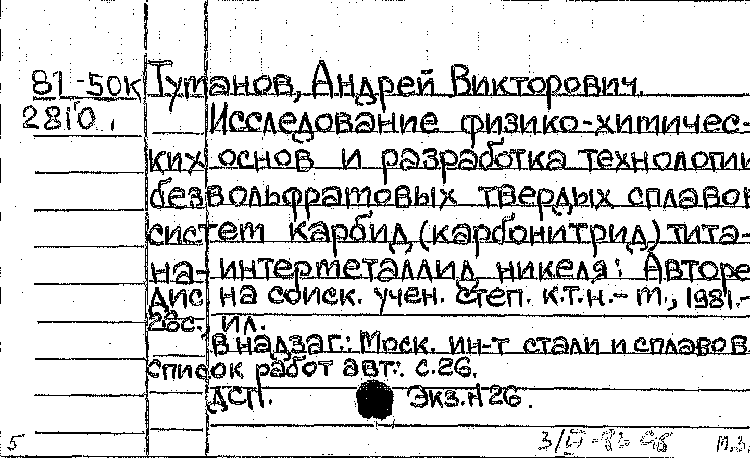 81-50к Туманов, Андрей Викторович.
2810. Исследование физико-химичес-
ких основ и разработка технологии
безвольфрамовых твердых сплавов
систем карбид (карбонитрид) тита-
на-интерметаллид никеля: Авторе
дис на соиск. учен. степ. к.т.н.- м., 1981.-
26с., ил.
В надзаг.: Моск. ин-т стали и сплавов
Список работ авт.: с.26.
ДСП. Экз.№26.
5